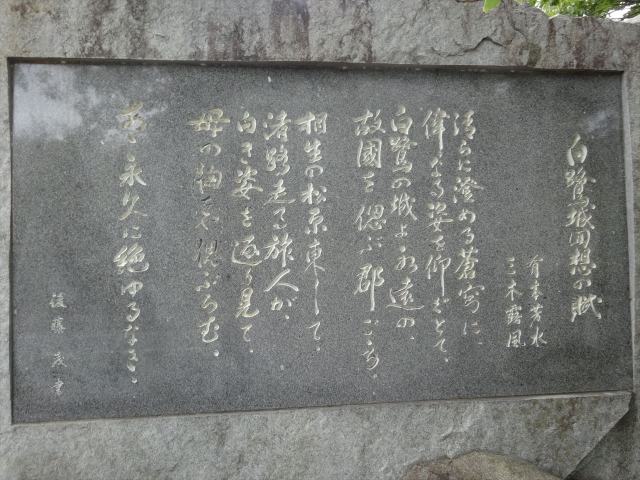 白鷺城回想の賦
有本芳水
三木露風
清らに澄める蒼穹に、
偉なる姿を仰ぎとて、
白鷺の城よ永遠の、
故國を偲ぶ郡ごゝろ。
相生の松原東して、
渚路走る旅人が、
白き姿を返り見て、
母の胸をば偲ぶらむ。
あゝ永久に絶ゆるなき。
後藤 茂